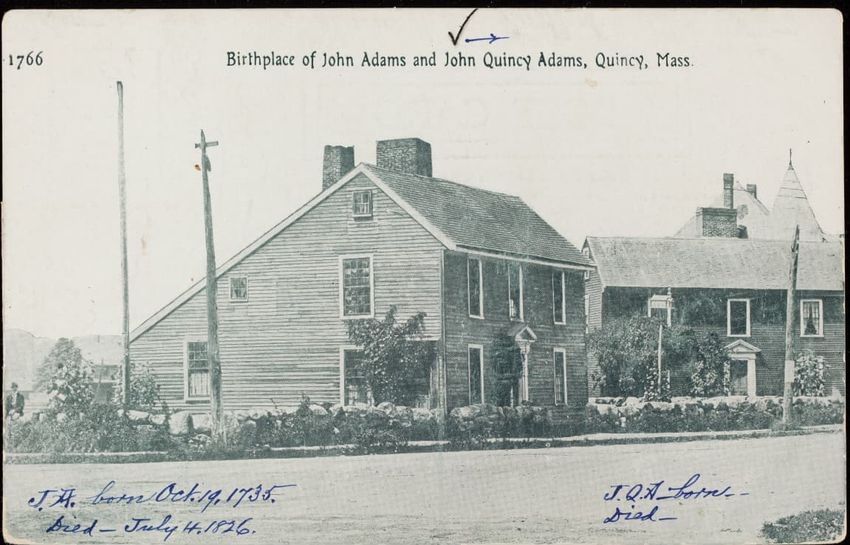 1766
Birthplace of John Adams and John Quincy Adams, Quincy, Mass.
J. A. born Oct. 19, 1735.
Died – July 4. 1826.
J. Q. A – born – –
Died –